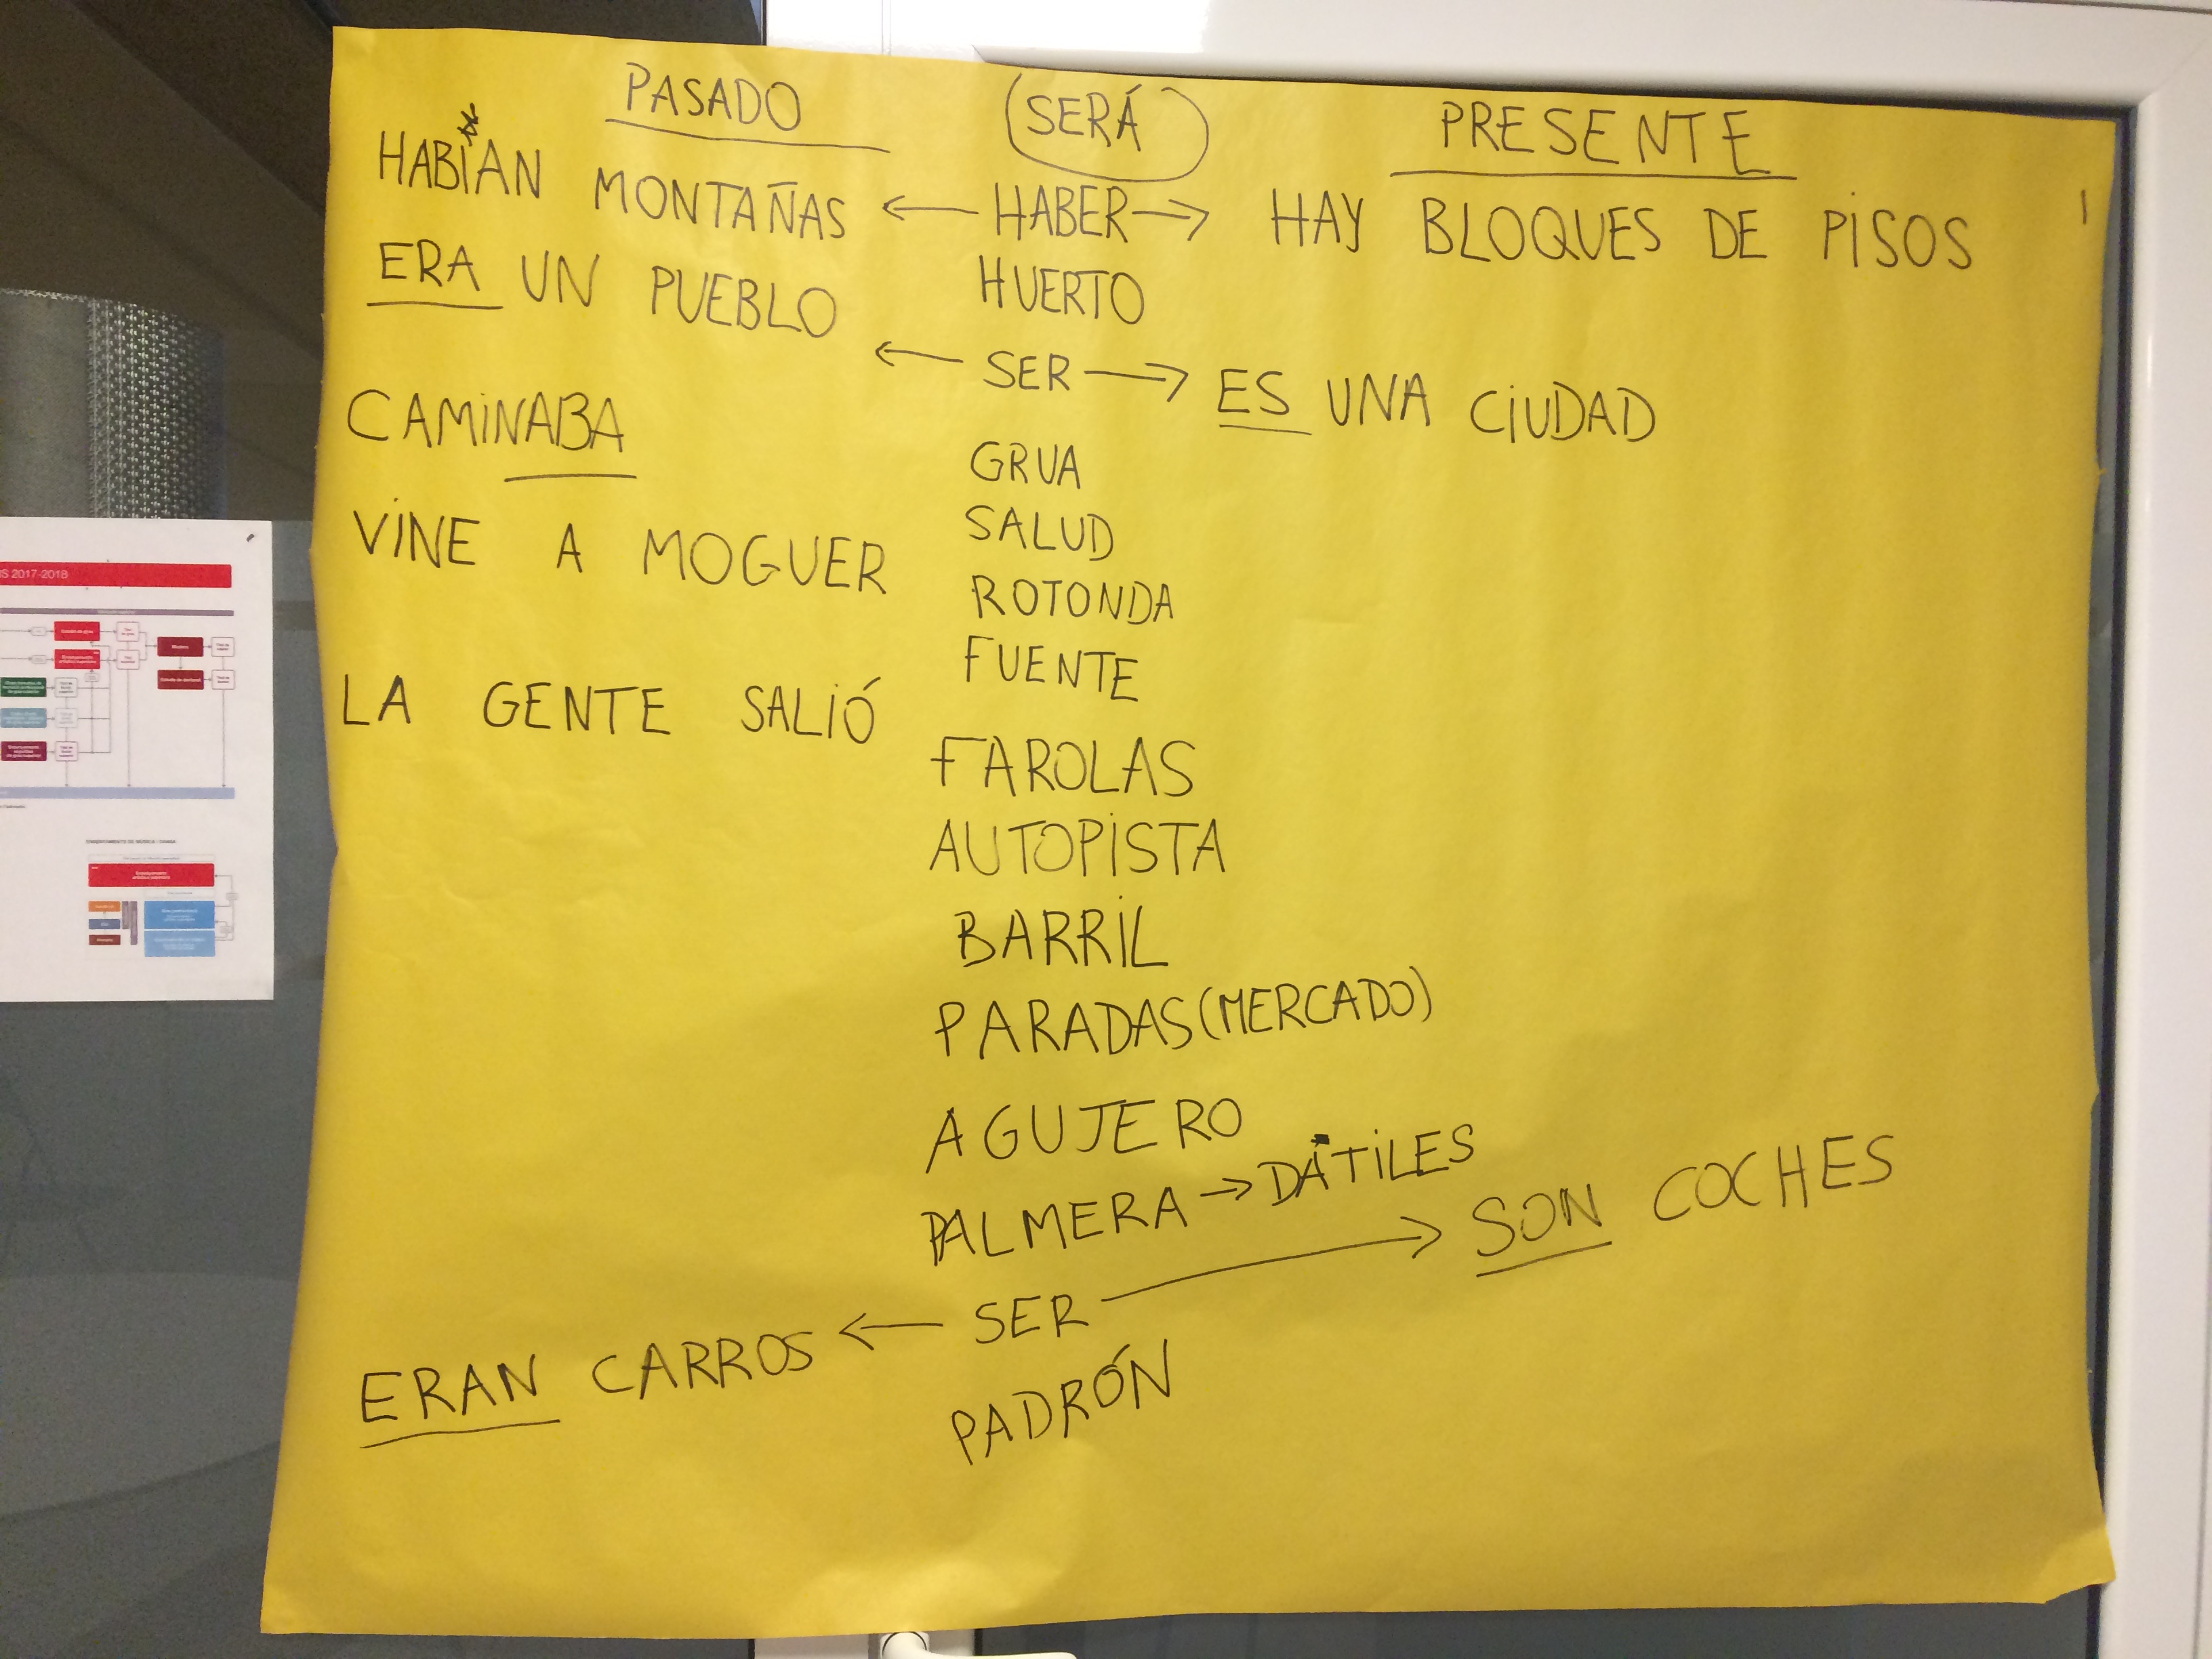 PASADO (SERÁ) PRESENTE
HABÍAN MONTAÑAS ← HABER → HAY BLOQUES DE PISOS
ERA UN PUEBLO
HUERTO
← SER → ES UNA CIUDAD
CAMINABA
GRUA
VINE A MOGUER
SALUD
ROTONDA
FUENTE
LA GENTE SALIÓ
FAROLAS
AUTOPISTA
BARRIL
PARADAS (MERCADO)
AGUJERO
PALMERA → DÁTILES
ERAN CARROS ← SER → SON COCHES
PADRÓN
S 2017-2018